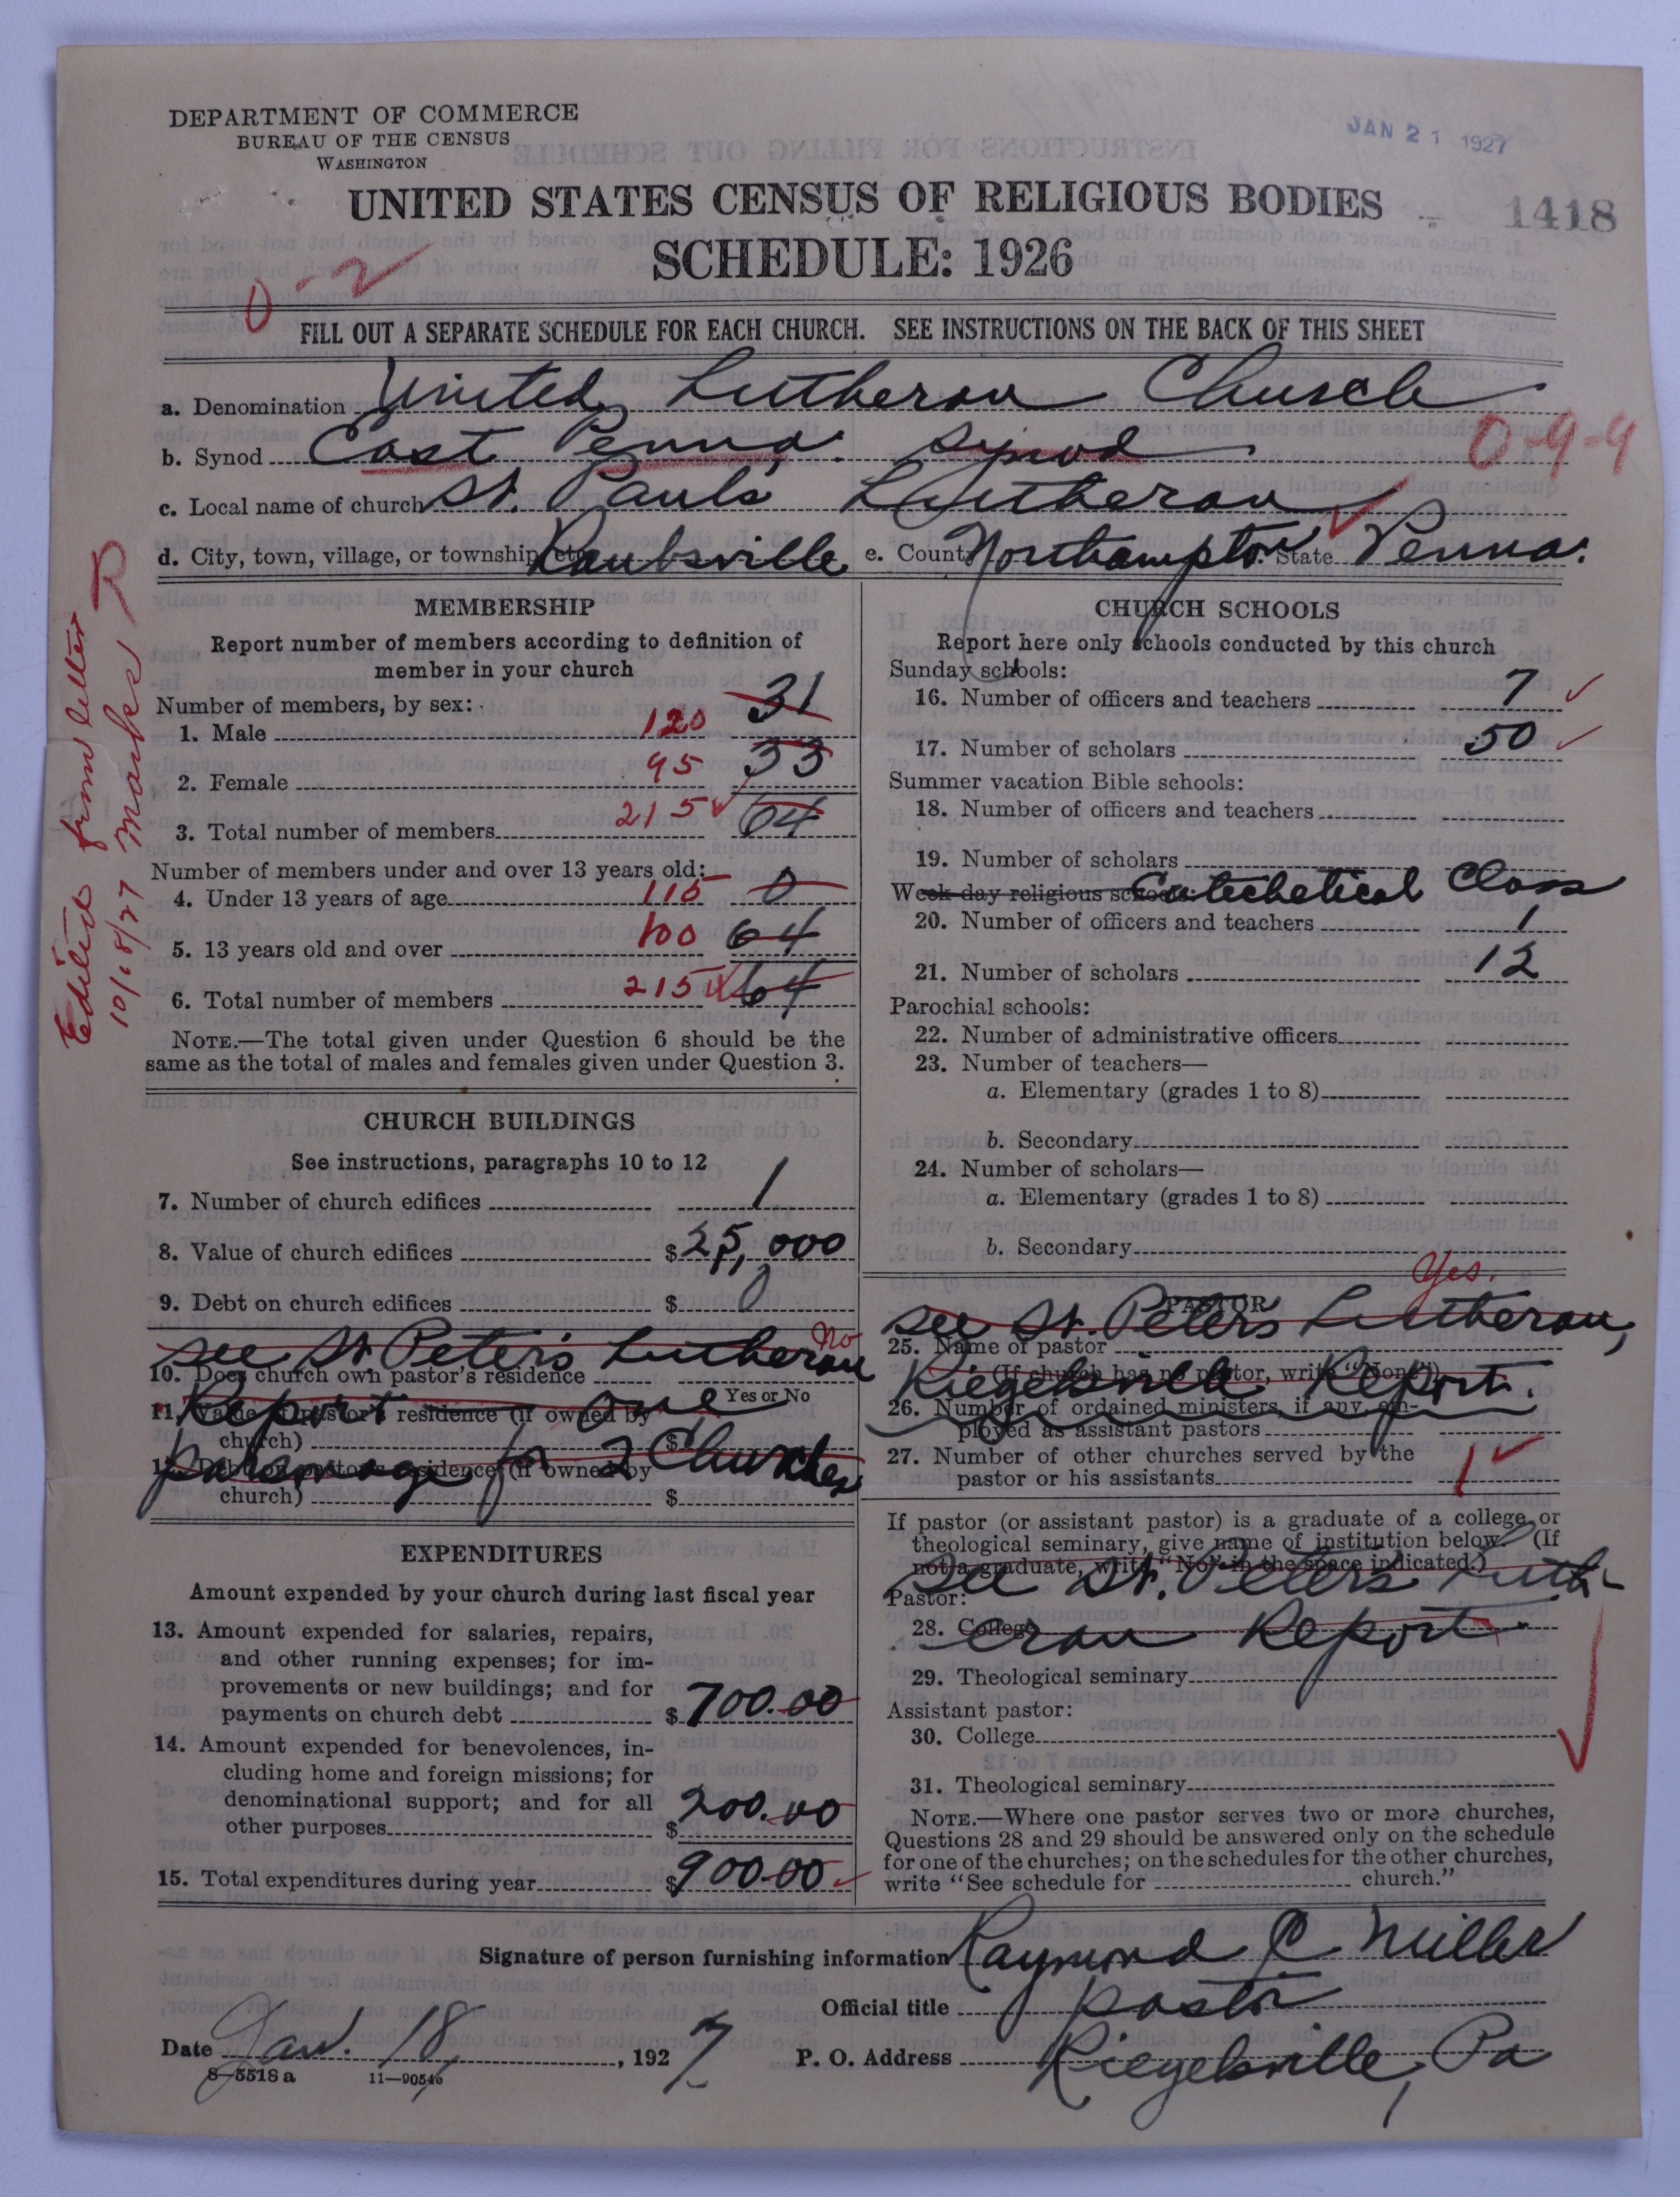 DEPARTMENT OF COMMERCE
BUREAU OF THE CENSUS
WASHINGTON
JAN 21 1927
UNITED STATES CENSUS OF RELIGIOUS BODIES
1418
SCHEDULE: 1926
0-2
FILL OUT A SEPARATE SCHEDULE FOR EACH CHURCH. SEE INSTRUCTIONS ON THE BACK OF THIS SHEET
a. Denomination United Lutheran Church
b. Synod East Penna. Synod 0-9-9
c. Local name of church St. Paul's Lutheran
d. City, town, village, or township, etc. Raubsville e. County Northampton State Penna.
Edited from letter
10/18/27 Marks R
MEMBERSHIP
Report number of members according to definition of
member in your church
Number of members, by sex:
1. Male 120 31
2. Female 95 33
3. Total number of members 215 64
Number of members under and over 13 years old:
4. Under 13 years of age 115 0
5. 13 years old and over 100 64
6. Total number of members 215 64
NOTE.—The total given under Question 6 should be the
same as the total of males and females given under Question 3.
CHURCH BUILDINGS
See instructions, paragraphs 10 to 12
7. Number of church edifices 1
8. Value of church edifices $25,000
9. Debt on church edifices $ 0
see St Peter's Lutheran No
10. Does church own pastor's residence
Yes or No
Report — one
11. Value of pastor's residence (if owned by
church) $
parsonage for 2 Churches
12. Debt on pastor's residence (if owned by
church) $
EXPENDITURES
Amount expended by your church during last fiscal year
13. Amount expended for salaries, repairs,
and other running expenses; for im-
provements or new buildings; and for
payments on church debt $ 700.00
14. Amount expended for benevolences, in-
cluding home and foreign missions; for
denominational support; and for all
other purposes $ 200.00
15. Total expenditures during year $ 900.00
CHURCH SCHOOLS
Report here only schools conducted by this church
Sunday schools:
16. Number of officers and teachers 7
17. Number of scholars 50
Summer vacation Bible schools:
18. Number of officers and teachers
19. Number of scholars
Week-day religious schools: Catechetical Class
20. Number of officers and teachers 1
21. Number of scholars 12
Parochial schools:
22. Number of administrative officers
23. Number of teachers—
a. Elementary (grades 1 to 8)
b. Secondary
24. Number of scholars—
a. Elementary (grades 1 to 8)
b. Secondary
Yes.
PASTOR
see St. Peter's Lutheran,
25. Name of pastor
(If church has no pastor, write "None")
Riegelsville Report.
26. Number of ordained ministers, if any, em-
ployed as assistant pastors
27. Number of other churches served by the
pastor or his assistants 1
If pastor (or assistant pastor) is a graduate of a college or
theological seminary, give name of institution below. (If
not a graduate, write "No" in the space indicated.)
see St. Peter's Luth-
Pastor:
28. College
eran Report
29. Theological seminary
Assistant pastor:
30. College
31. Theological seminary
NOTE.—Where one pastor serves two or more churches,
Questions 28 and 29 should be answered only on the schedule
for one of the churches; on the schedules for the other churches,
write "See schedule for church."
Signature of person furnishing information Raymond C. Miller
Official title pastor
Date Jan. 18, 1927 P. O. Address Riegelsville, Pa
8-5518a 11-90546